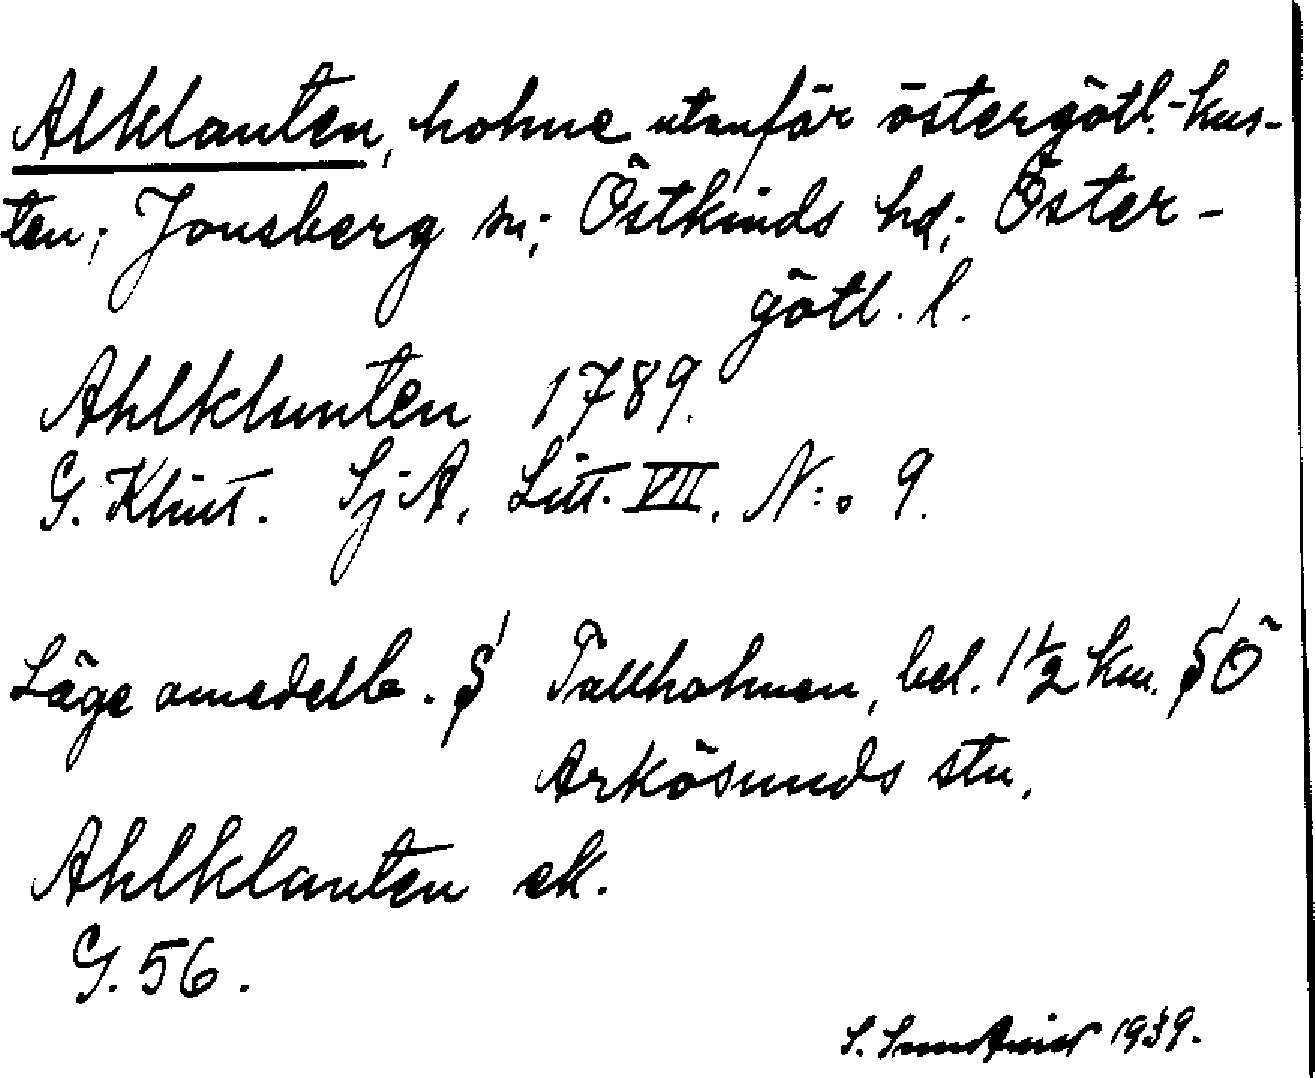 Alklanten, holme utanför östergötl.-kus-
ten; Jonsberg sn; Östkinds hd; Öster-
götl. l.
Ahlklunten 1789.
G. Klint. SjA, Litt. VII, N:o 9.
Läge omedelb. S Tallholmen, bel. 1 1/2 km. SÖ
Arkösunds stn.
Ahlklanten ek.
G. 56.
S. 1939.